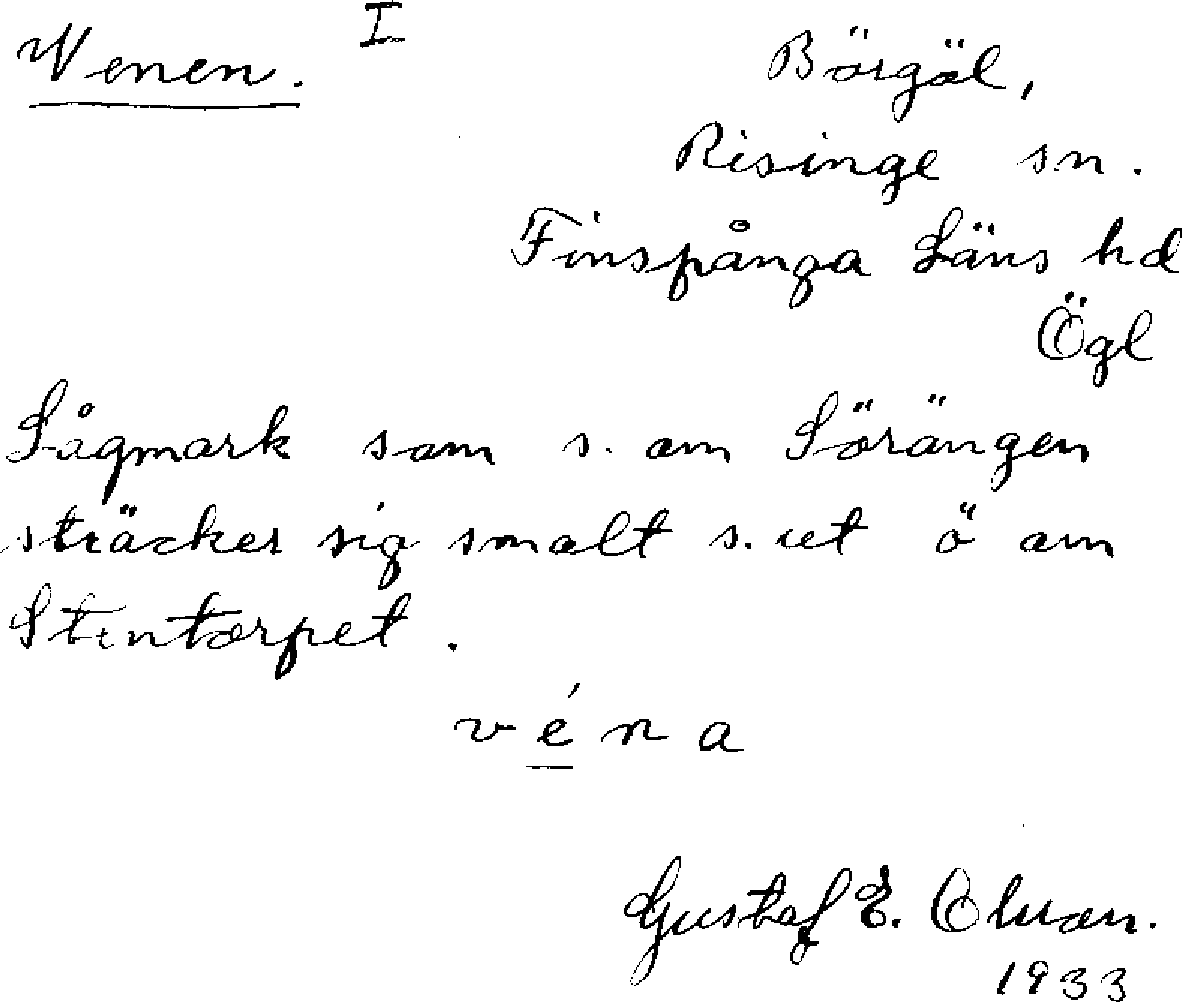 Wenen. I Börgöl,
Risinge sn.
Finspånga Läns hd
Ögl
Lågmark som s. om Sörängen
sträcker sig smalt s. ut ö om
Stentorpet.
véna
Gustaf E.
1933